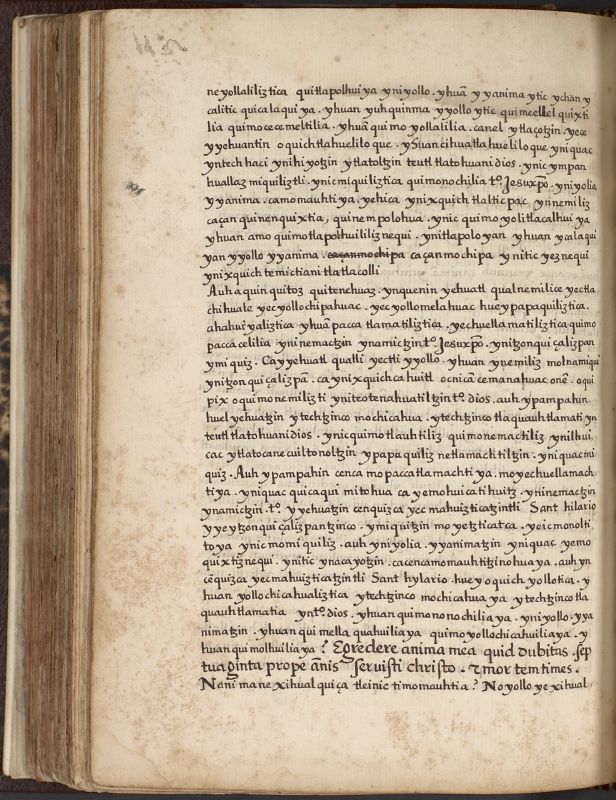 neyollaliliztica quitlapolhuiya yniyollo. yhuā yyanima ytic ychan y
calitic quicalaquiya. yhuan yuhquinma yyollo ytic quimeellelquixti
lia quimocecemeltilia. yhuā quimoyollalilia. canel ytlaçotzin. yece
yyehuantin oquichtlahueliloque. ySuan cihuatlahueliloque yniquac
yntech haci ynihiyotzin ytlatoltzin teutl tlatohuani dios. ynic ympan
huallaz miquiliztli. ynic miquiliztica quimonochilia to. Jesuxpo. yniyolia
yyanima. camomauhtiya. yehica ynixquich tlalticpac ynnemiliz
caçan quinenquixtia, quinempolohua. ynic quimoyolitlacalhuiya
yhuan amo quimotlapolhuililiznequi. ynitlapoloyan yhuan ycalaqui
yan yyollo yyanima. caçanmochipa caçan mochipa ynitic yeznequi
ynixquich temictiani tlatlacolli
Auh aquin quitoz quitenehuaz. ynquenin yehuatl qualnemilice yectla
chihuale yecyollochipahuac. yecyollomelahuac huey papaquiliztica.
ahahuiyaliztica yhuā pacca tlamatiliztica. yechuellamatiliztica quimo
pacca celilia yninemactzin ynamictzin to. Jesuxpo. ynitzonquiçalizpan
ymiquiz. Ca yyehuatl qualli yectli yyollo. yhuan ynemiliz molnamiqui
ynitzonquiçalizpā. ca ynixquich cahuitl ocnican cemanahuac onē. oqui
pix oquimonemilizti yniteotenahuatiltzin to. dios. auh ypampahin.
huel yehuatzin ytechtzinco mochicahua. ytechtzinco tlaquauhtlamati yn
teutl tlatohuani dios. ynic quimotlauhtiliz quimonemactiliz ynilhui
cac ytlatocanecuiltonoltzin ypapaquiliz netlamachtiltzin. yniquac mi
quiz. Auh ypampahin cenca mopaccatlamachtiya. moyechuellamach
tiya. yniquac quicaqui mitohua ca yemohuicatihuitz. yninemactzin
ynamictzin. to. yyehuatzin cenquizca yecmahuizticatzintli Sant hilario
yyeytzonquiçalizpantzinco. ymiquitzin moyetzticatca. yeic monolti
toya ynic momiquiliz. auh yniyolia. yyanimatzin yniquac yemo
quixtiznequi. ynitic ynacayotzin. cacencamomauhtitzinohuaya. auhyn
cēquizca yecmahuizticatzintli Sant hylario. huey oquichyollotica. y
huan yollochicahualiztica ytechtzinco mochicahuaya ytechtzinco tla
quauhtlamatia ynto. dios. yhuan quimononochiliaya. yniyollo. yya
nimatzin. yhuan quimellaquahuiliaya quimoyollochicahuiliaya. y
huan quimolhuiliaya? Egredere anima mea quid dubitas. sep
tuaginta prope ānis seruisti christo. & mortem times.
Naniman e xihualquiça tleinic timomauhtia? Noyollo ye xihual